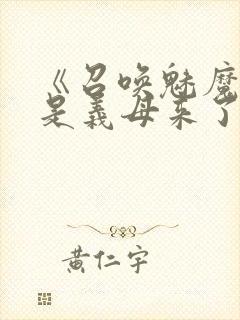 《召唤魅魔
是义母来了
黄仁宇